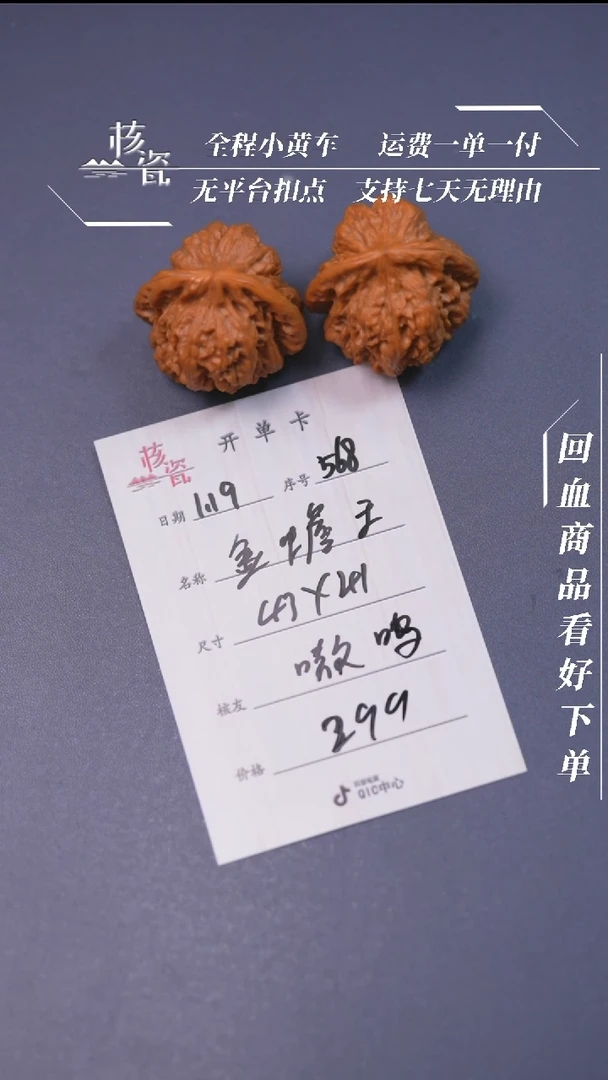 核瓷
全程小黄车 运费一单一付
无平台扣点 支持七天无理由
核瓷
开单卡
日期 1.19 序号 568
名称 金蟾王
尺寸
核友 嗷呜
价格 399
QIC中心
回血商品看好下单